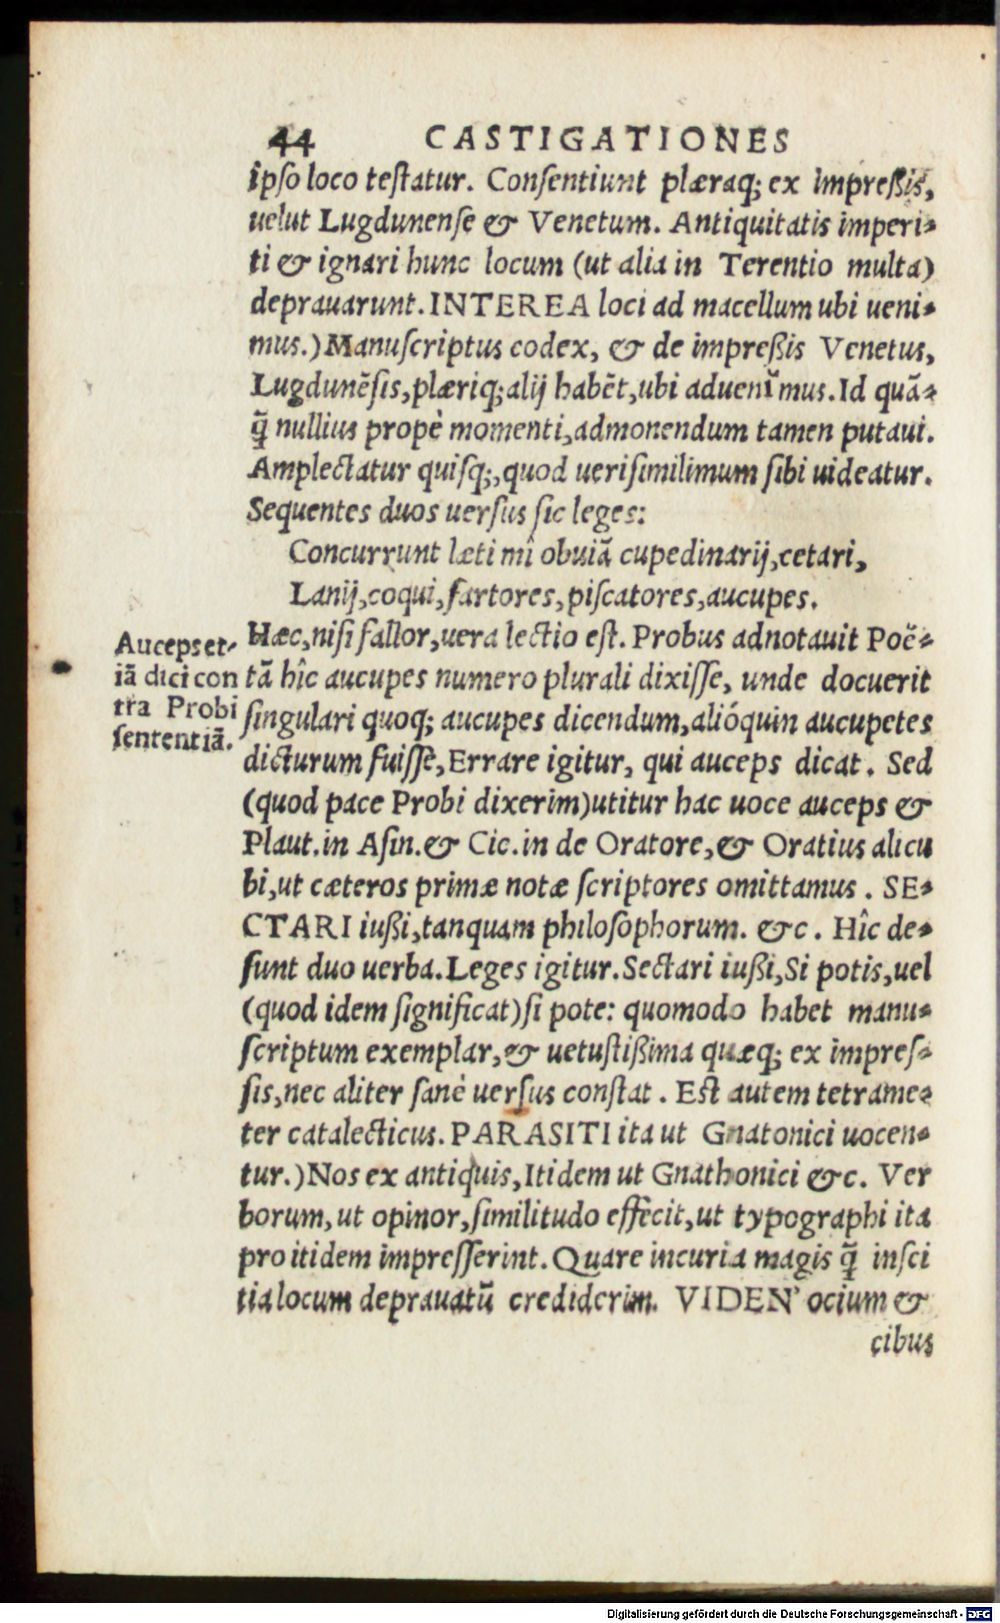 44 CASTIGATIONES
ipso loco testatur. Consentiunt plæraq; ex impreßis,
uelut Lugdunense & Venetum. Antiquitatis imperi-
ti & ignari hunc locum (ut alia in Terentio multa)
deprauarunt. INTEREA loci ad macellum ubi ueni-
mus.) Manuscriptus codex, & de impreßis Venetus,
Lugdunẽsis, plæriq; alij habẽt, ubi aduenĩmus. Id quã-
q̃ nullius propè momenti, admonendum tamen putaui.
Amplectatur quisq;, quod uerisimilimum sibi uideatur.
Sequentes duos uersus sic leges:
Concurrunt læti mî obuiã cupedinarij, cetari,
Lanij, coqui, fartores, piscatores, aucupes.
Hæc, nisi fallor, uera lectio est. Probus adnotauit Poẽ-
tã hîc aucupes numero plurali dixisse, unde docuerit
singulari quoq; aucupes dicendum, alióquin aucupetes
dicturum fuisse, Errare igitur, qui auceps dicat. Sed
(quod pace Probi dixerim) utitur hac uoce auceps &
Plaut. in Asin. & Cic. in de Oratore, & Oratius alicu
bi, ut cæteros primæ notæ scriptores omittamus. SE-
CTARI iußi, tanquam philosophorum. &c. Hîc de-
sunt duo uerba. Leges igitur. Sectari iußi, Si potis, uel
(quod idem significat) si pote: quomodo habet manu-
scriptum exemplar, & uetustißima quæq; ex impres-
sis, nec aliter sanè uersus constat. Est autem tetrame-
ter catalecticus. PARASITI ita ut Gnatonici uocen-
tur.) Nos ex antiquis, Itidem ut Gnathonici &c. Ver
borum, ut opinor, similitudo effecit, ut typographi ita
pro itidem impresserint. Quare incuria magis q̃ insci
tia locum deprauatũ crediderim. VIDEN' ocium &
cibus
Auceps et-
iã dici con
tra Probi
sententiã.
Digitalisierung gefördert durch die Deutsche Forschungsgemeinschaft - DFG